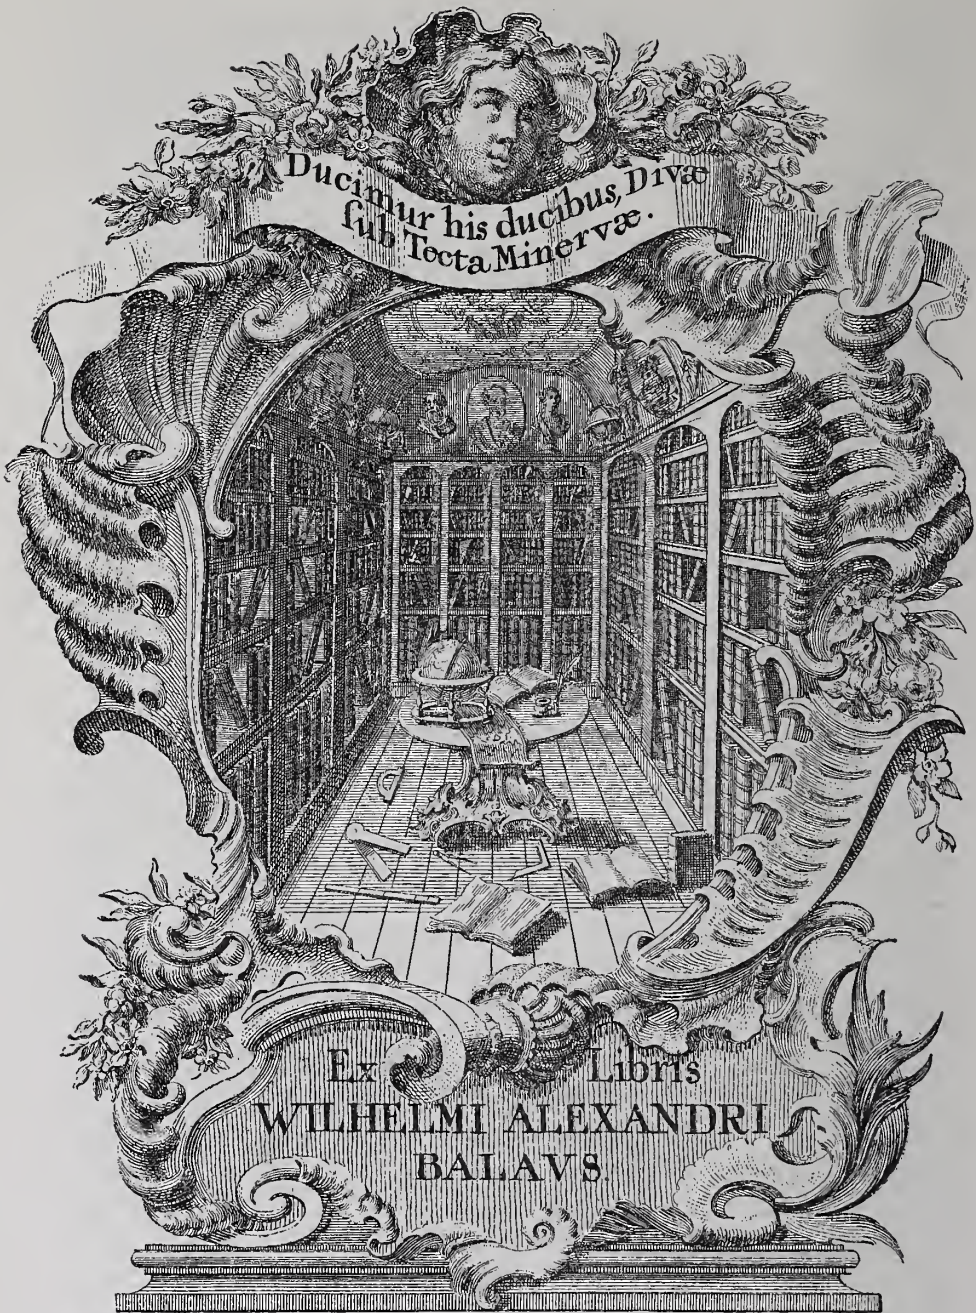 Ducimur his ducibus, Divæ
ſub Tecta Minervæ.
Ex Libris
WILHELMI ALEXANDRI
BALAVS.